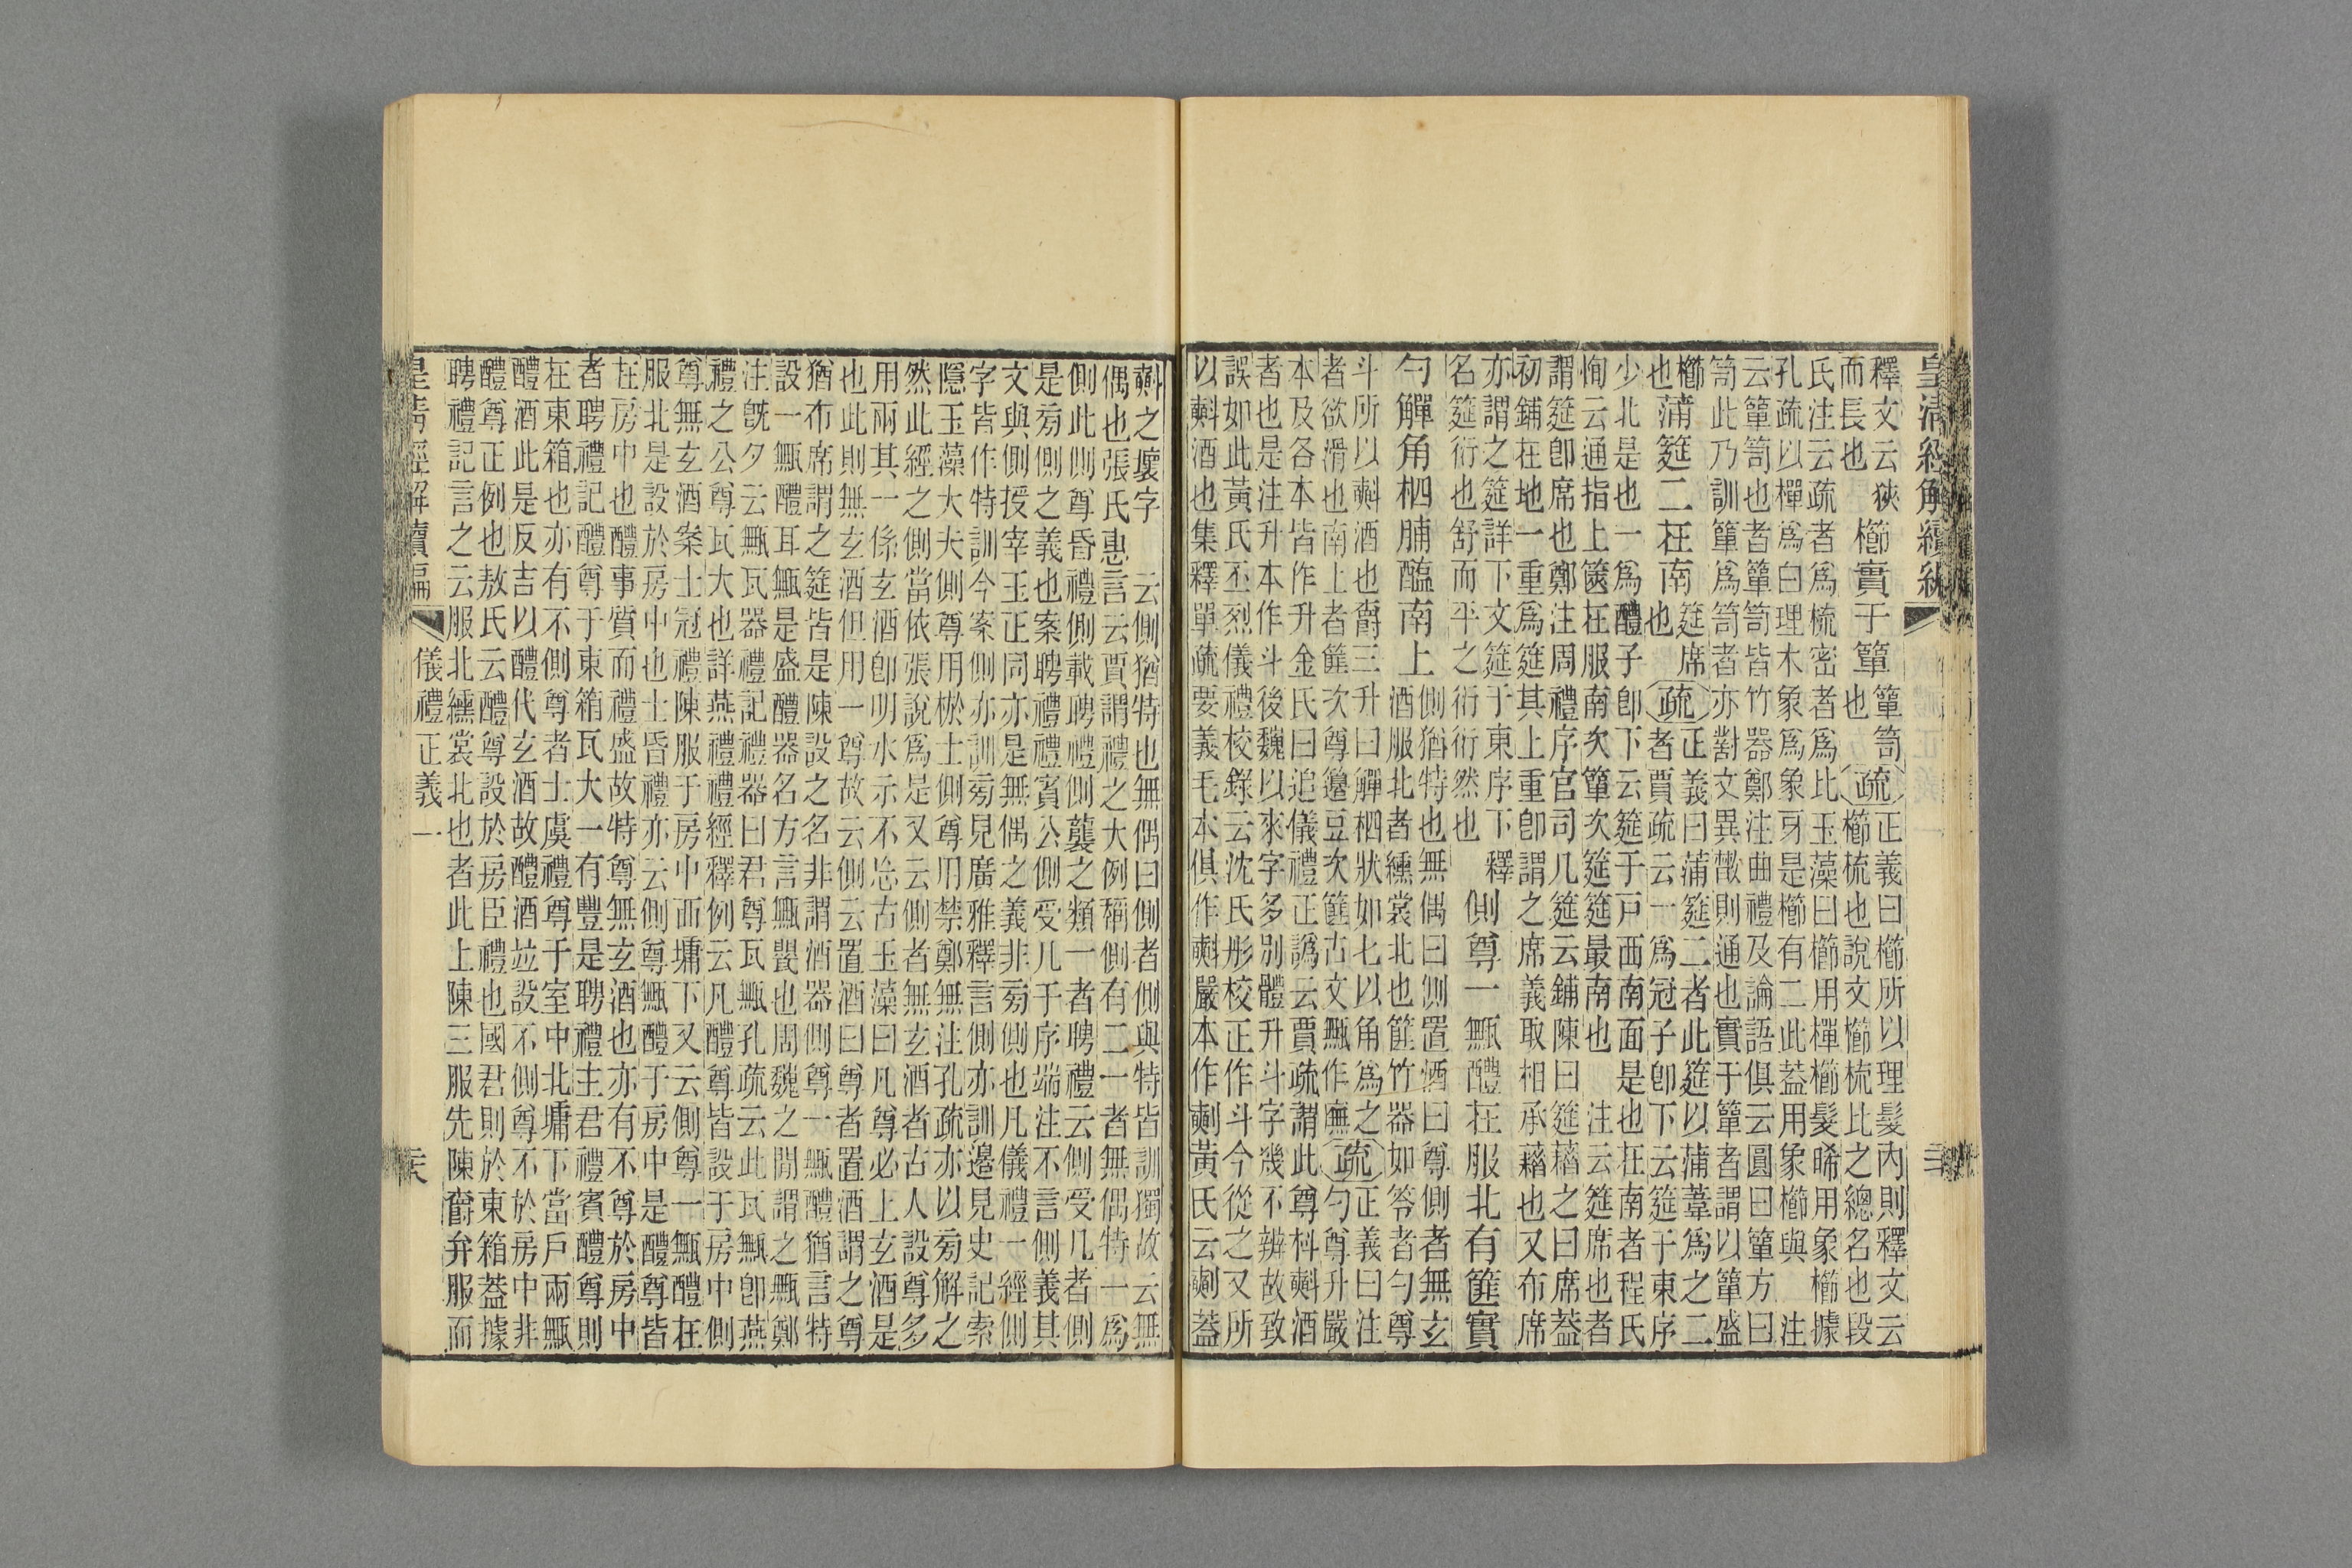 皇清經解續編
釋文云狹
而長也 櫛實于簞 簞笥
也 疏 正義曰櫛所以理髮內則釋文云
櫛梳也說文櫛梳比之總名也段
氏注云疏者爲梳密者爲比玉藻曰櫛用樿櫛髮晞用象櫛據
孔疏以樿爲白理木象爲象牙是櫛有二此葢用象櫛與 注
云簞笥也者簞笥皆竹器鄭注曲禮及論語俱云圓曰簞方曰
笥此乃訓簞爲笥者亦對文異散則通也實于簞者謂以簞盛
櫛
也 蒲筵二在南 筵席
也 疏 正義曰蒲筵二者此筵以蒲葦爲之二
者賈疏云一爲冠子卽下云筵于東序
少北是也一爲醴子卽下云筵于戶西南面是也在南者程氏
恂云通指上篋在服南次簞次筵筵最南也 注云筵席也者
謂筵卽席也鄭注周禮序官司几筵云鋪陳曰筵藉之曰席葢
初鋪在地一重爲筵其上重卽謂之席義取相承藉也又布席
亦謂之筵詳下文筵于東序下 釋
名筵衍也舒而平之衍衍然也 側尊一甒醴在服北有篚實
勺觶角柶脯醢南上 側猶特也無偶曰側置酒曰尊側者無玄
酒服北者纁裳北也篚竹器如笭者勺尊
斗所以㪺酒也爵三升曰觶柶狀如匕以角爲之
者欲滑也南上者篚次尊籩豆次篚古文甒作廡 疏 正義曰注
勺尊升嚴
本及各本皆作升金氏曰追儀禮正譌云賈疏謂此尊枓㪺酒
者也是注升本作斗後魏以來字多別體升斗字幾不辨故致
誤如此黃氏丕烈儀禮校錄云沈氏彤校正作斗今從之又所
以㪺酒也集釋單疏要義毛本俱作㪺嚴本作 黃氏云 葢
㪺之壞字 云側猶特也無偶曰側者側與特皆訓獨故云無
偶也張氏惠言云賈謂禮之大例稱側有二一者無偶特一爲
側此側尊昏禮側載聘禮側襲之類一者聘禮云側受几者側
是旁側之義也案聘禮禮賓公側受几于序端注不言側義其
文與側授宰玉正同亦是無偶之義非旁側也凡儀禮一經側
字皆作特訓今案側亦訓旁見廣雅釋言側亦訓邊見史記索
隱玉藻大夫側尊用棜士側尊用禁鄭無注孔疏亦以旁解之
然此經之側當依張說爲是又云側者無玄酒者古人設尊多
用兩其一係玄酒卽明水示不忘古玉藻曰凡尊必上玄酒是
也此則無玄酒但用一尊故云側云置酒曰尊者置酒謂之尊
猶布席謂之筵皆是陳設之名非謂酒器側尊一甒醴猶言特
設一甒醴耳甒是盛醴器名方言甒甖也周魏之閒謂之甒鄭
注旣夕云甒瓦器禮記禮器曰君尊瓦甒孔疏云此瓦甒卽燕
禮之公尊瓦大也詳燕禮禮經釋例云凡醴尊皆設于房中側
尊無玄酒案士冠禮陳服于房中西墉下又云側尊一甒醴在
服北是設於房中也士昏禮亦云側尊甒醴于房中是醴尊皆
在房中也醴事質而禮盛故特尊無玄酒也亦有不尊於房中
者聘禮記醴尊于東箱瓦大一有豐是聘禮主君禮賓醴尊則
在東箱也亦有不側尊者士虞禮尊于室中北墉下當戶兩甒
醴酒此是反吉以醴代玄酒故醴酒竝設不側尊不於房中非
醴尊正例也敖氏云醴尊設於房臣禮也國君則於東箱葢據
聘禮記言之云服北纁裳北也者此上陳三服先陳爵弁服而
皇清經解續編 儀禮正義一